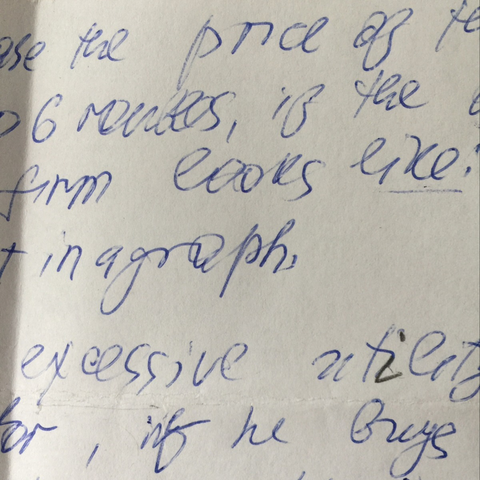 the price of
6 if the
firm looks like:
t in a graph.
excessive utility
for, if he buys